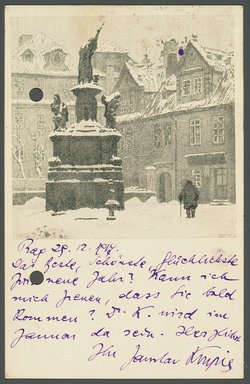 Prag 29. 12. 1914.
Das Beste, Schönste, Glücklichste
neue Jahr? Kann ich
mich freuen, dass Sie bald
kommen? Dr. K. wird im
Januar da sein. Herzlichst
Ihr Jaroslav